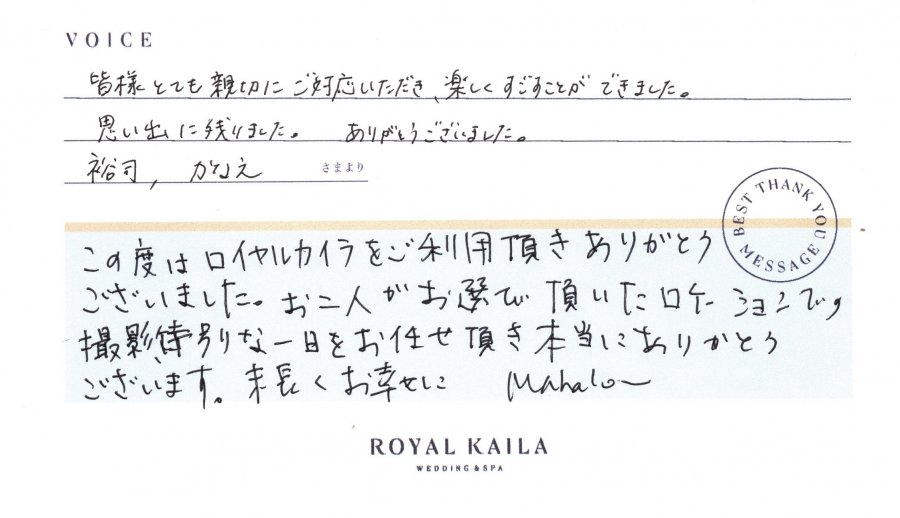 VOICE
皆様とても親切にご対応いただき、楽しくすごすことができました。
思い出に残りました。 ありがとうございました。
裕司, かなえ さまより
BEST THANK YOU MESSAGE
この度はロイヤルカイラをご利用頂きありがとう
ございました。お二人がお選び頂いたロケーションでの
撮影、特別な一日をお任せ頂き本当にありがとう
ございます。末長くお幸せに Mahalo~
ROYAL KAILA
WEDDING & SPA